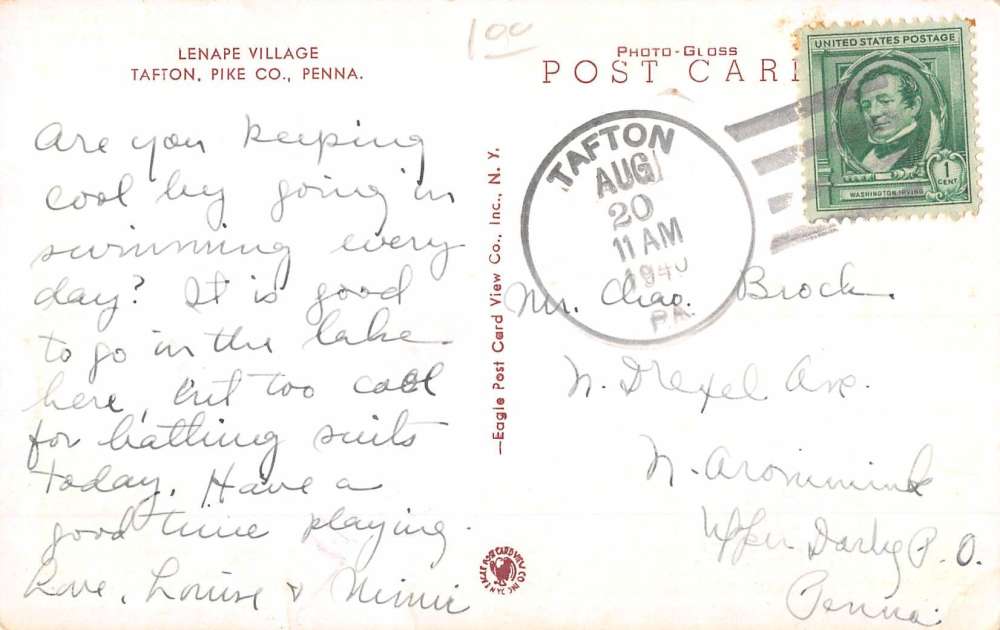 1.00
LENAPE VILLAGE
TAFTON, PIKE CO., PENNA.
PHOTO-GLOSS
POST CAR
UNITED STATES POSTAGE
1
CENT
WASHINGTON IRVING
TAFTON
AUG
20
11 AM
1940
PA.
Are you keeping
cool by going in
swimming every
day? It is good
to go in the lake
here, but too cool
for bathing suits
today. Have a
good time playing.
Love, Louise & Mimie
—Eagle Post Card View Co., Inc., N. Y.
Mr. Chas. Brock.
N. Drexel Ave.
N. Aronimink
Upper Darby P. O.
Penna.
EAGLE POST CARD VIEW CO. INC.